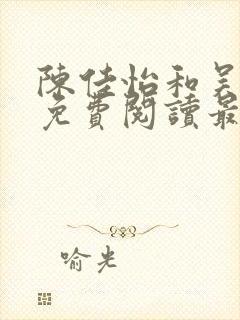 陳佳怡和吴
免費閱讀最
喻光